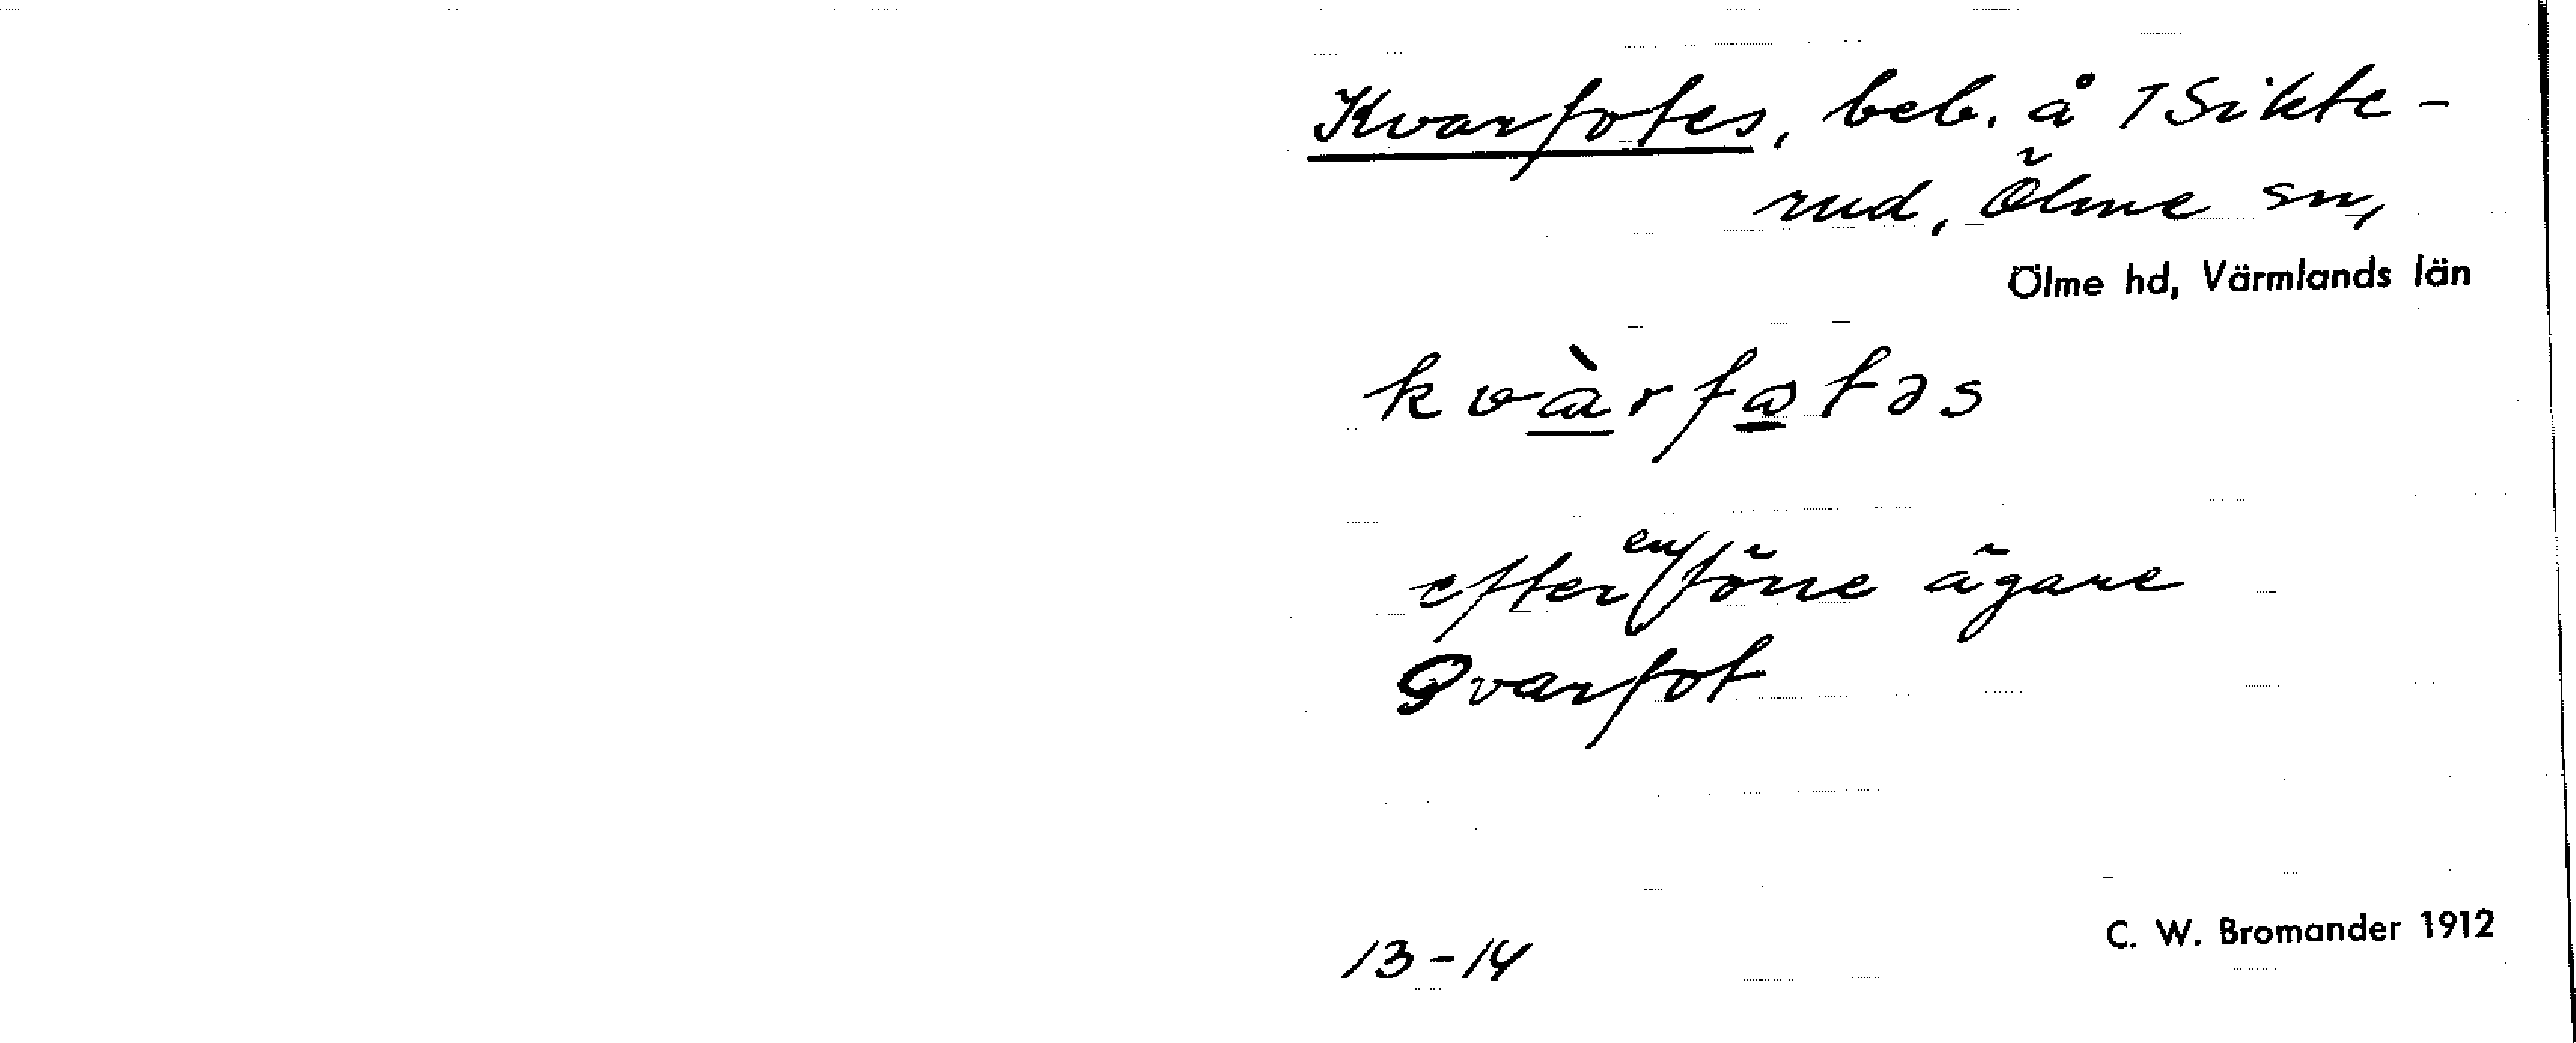 Kvarfotes, beb. å 1 Sikte-
rud, Ölme sn,
Ölme hd, Värmlands län
kvàrfωtəs
efter en förre ägare
Qvarfot
13-14
C. W. Bromander 1912